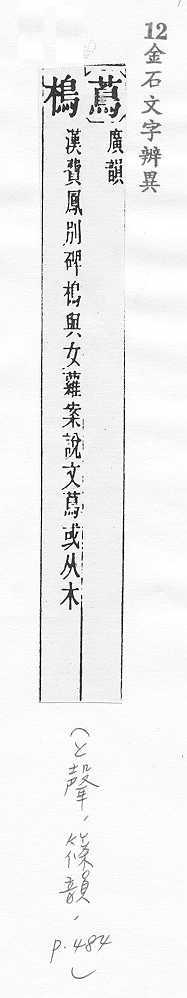 12金石文字辨異
蔦廣韻
樢漢費鳳別碑樢與女蘿案說文蔦或从木
(上聲,篠韻,
p.484)